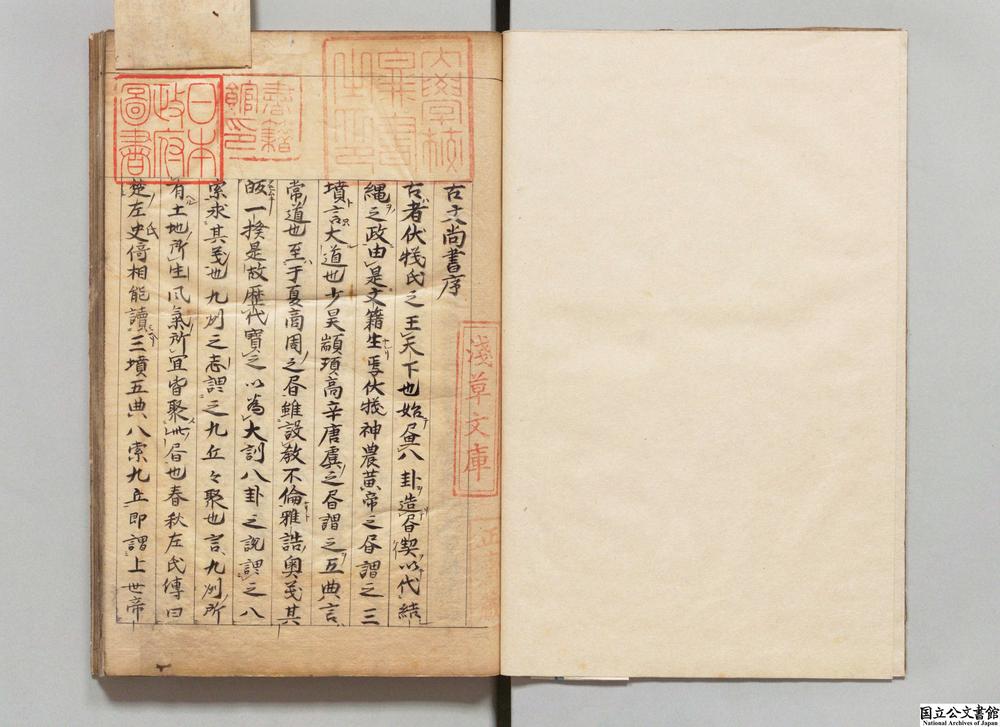 古文尚書序
古者伏犧氏之王天下也始畫八卦造書契以代結
繩之政由是文籍生焉伏犧神農黃帝之書謂之三
墳言大道也少昊顓頊高辛唐虞之書謂之五典言
常道也至于夏商周之書雖設教不倫雅誥奧義其
皈一揆是故歷代寶之以為大訓八卦之説謂之八
索求其義也九州之志謂之九丘々聚也言九州所
有土地所生風氣所宜皆聚此書也春秋左氏傳曰
楚左史倚相能讀三墳五典八索九丘即謂上世帝
淺草文庫
書籍館印
日本政府圖書
国立公文書館
National Archives of Japan